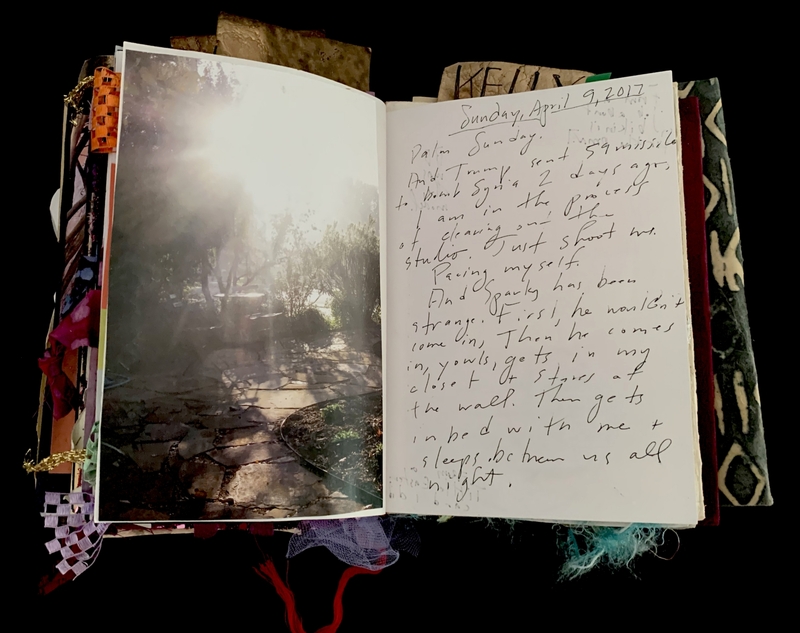 KELLY
Sunday, April 9, 2017
Palm Sunday.
And Trump sent 59 missiles
to bomb Syria 2 days ago.
I am in the process
of cleaning out the
studio. Just shoot me.
Pacing myself.
And Sparky has been
strange. First, he wouldn't
come in, Then he comes
in, yowls, gets in my
closet + stares at
the wall. Then gets
in bed with me +
sleeps between us all
night.